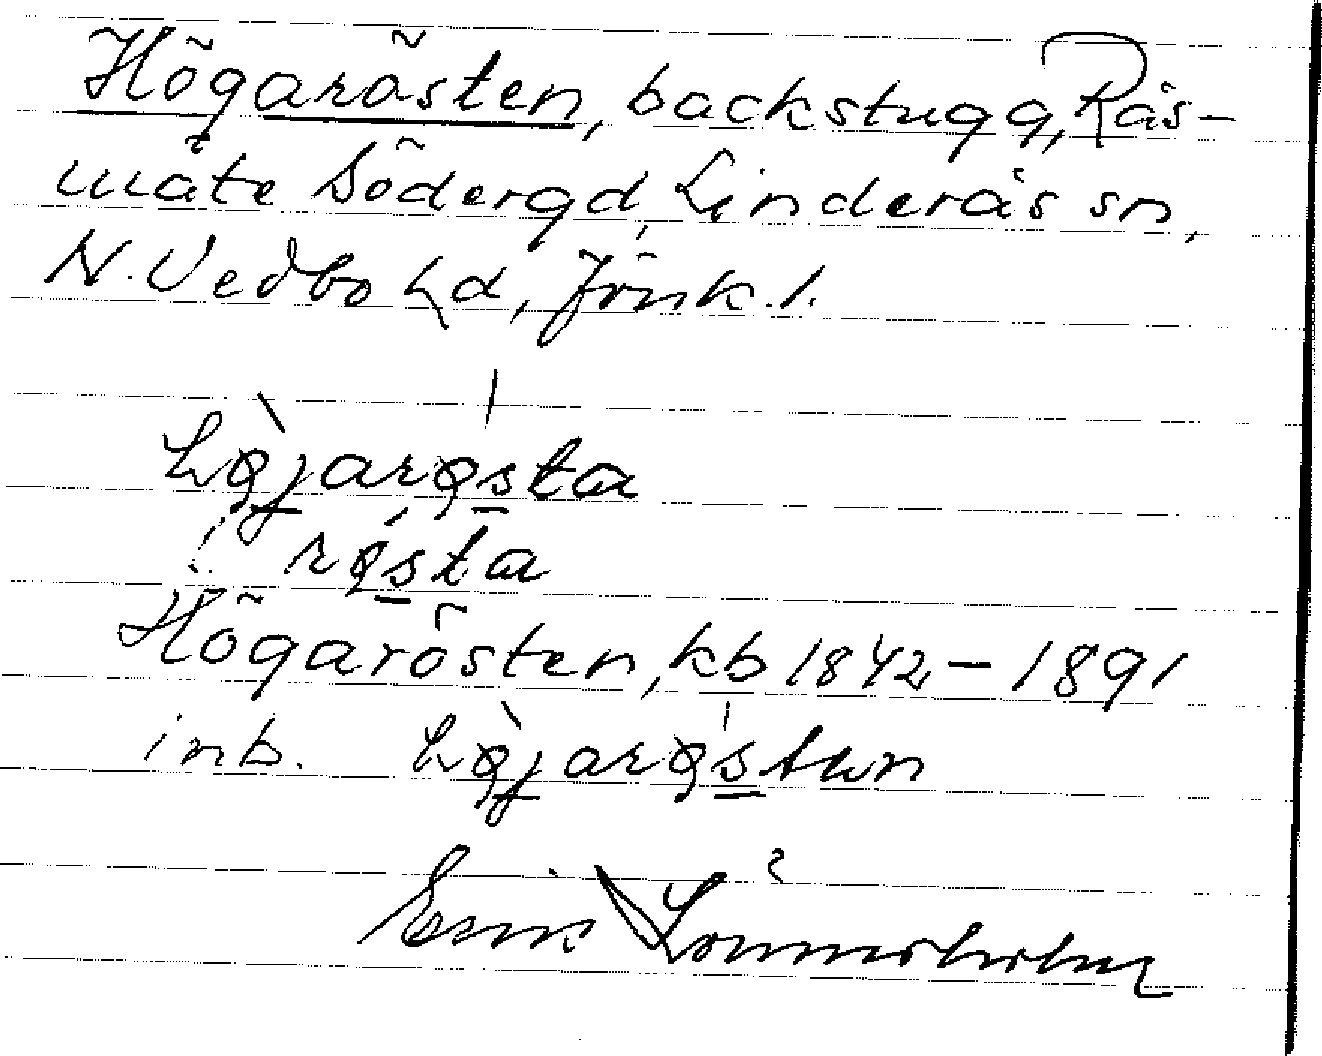 Högarösten, backstugg, Rås-
måte Södergd, Linderås sn,
N. Vedbo hd, Jönk. l.
hø̀jarø̍sta
rø̍sta
Högarösten, kb 1842–1891
inb. hø̀jarø̍stan
Erik